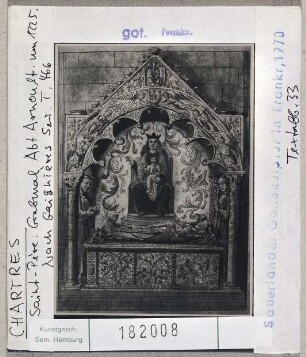 got. Frankr.
CHARTRES
Saint-Père. Grabmal Abt Arnoult. um 1225.
Nach Gaignières Ser. I, 466
Sauerländer, Got. Skulptur in Frankr., 1970
Textabb. 33
Kunstgesch.
Sem. Hamburg
182008